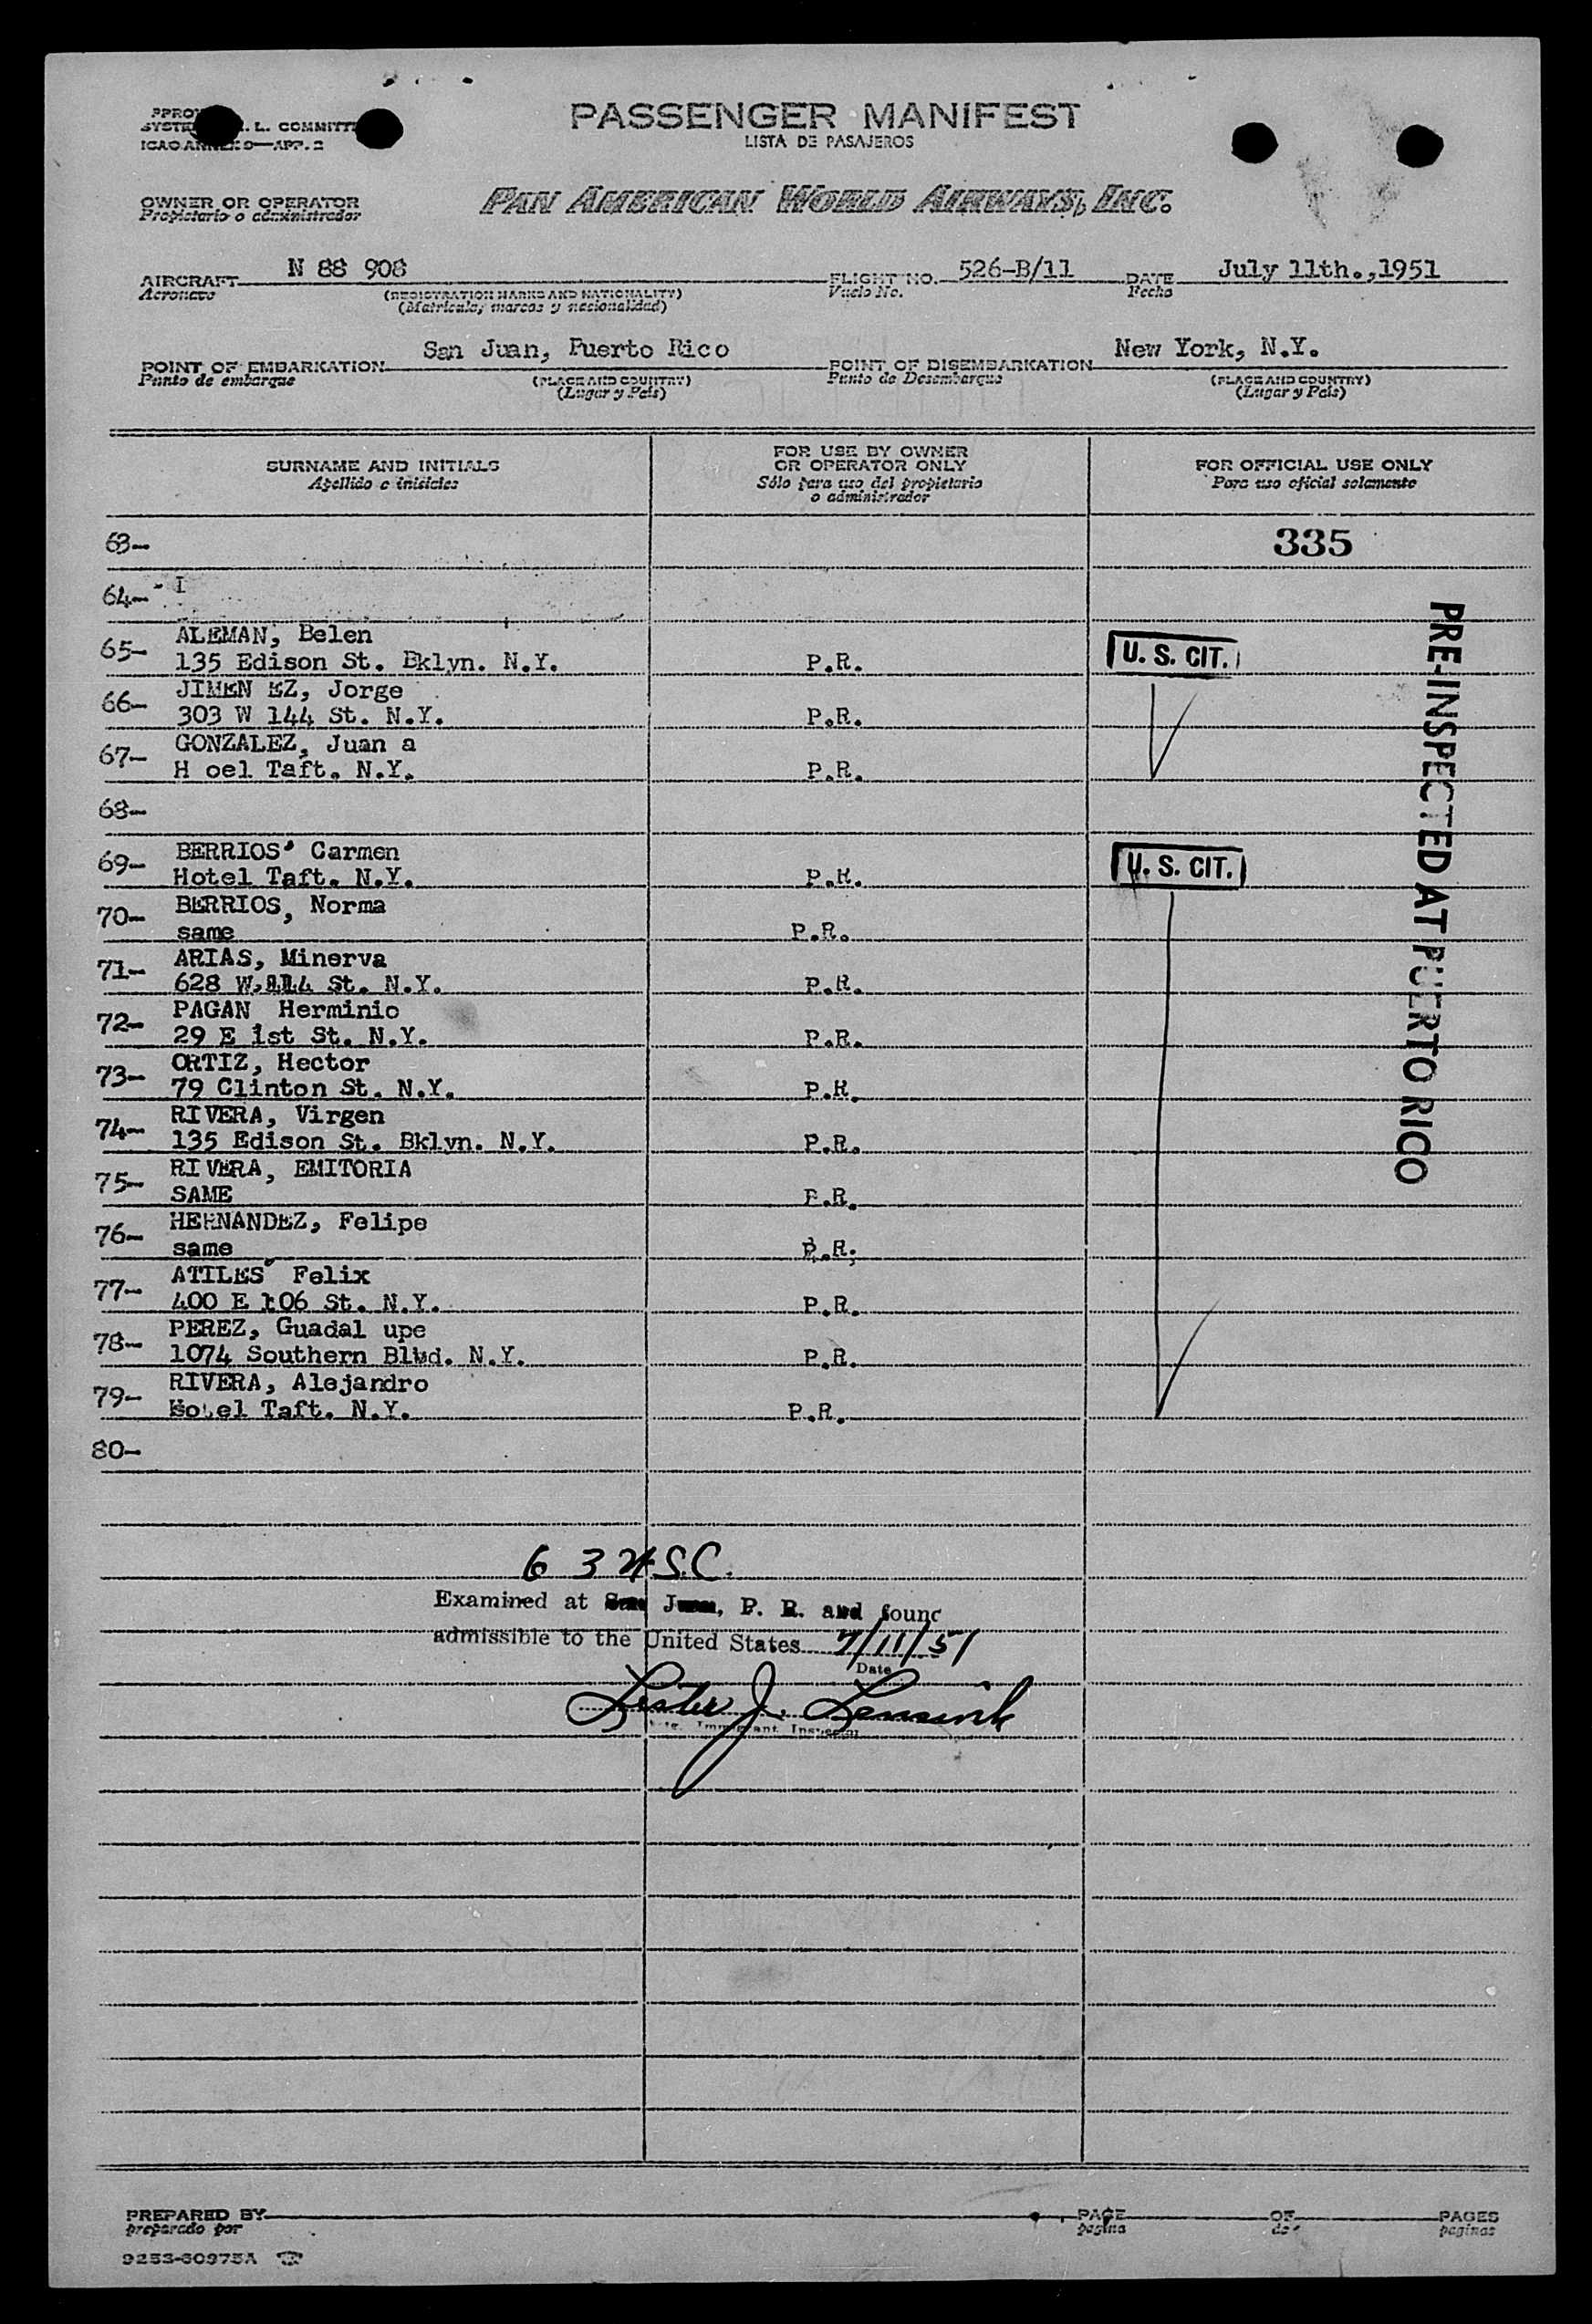 PASSENGER MANIFEST
LISTA DE PASAJEROS
L. COMMITT
ICAO ANNEX 9—APP. 2
OWNER OR OPERATOR
Propietario o administrador
PAN AMERICAN WORLD AIRWAYS, INC.
AIRCRAFT N 88 908 FLIGHT NO. 526-B/11 DATE July 11th.,1951
Aeronave (REGISTRATION MARKS AND NATIONALITY) Vuelo No. Fecha
(Matricula, marcas y nacionalidad)
POINT OF EMBARKATION San Juan, Puerto Rico POINT OF DISEMBARKATION New York, N.Y.
Punto de embarque (PLACE AND COUNTRY) Punto de Desembarque (PLACE AND COUNTRY)
(Lugar y Pais) (Lugar y Pais)
SURNAME AND INITIALS
Apellido e iniciales
FOR USE BY OWNER
OR OPERATOR ONLY
Sólo para uso del propietario
o administrador
FOR OFFICIAL USE ONLY
Para uso oficial solamente
63— 335
64— I
65— ALEMAN, Belen
135 Edison St. Bklyn. N.Y. P.R. U. S. CIT.
66— JIMEN EZ, Jorge
303 W 144 St. N.Y. P.R.
67— GONZALEZ, Juan a
H oel Taft. N.Y. P.R.
68—
69— BERRIOS' Carmen
Hotel Taft. N.Y. P.R. U. S. CIT.
70— BERRIOS, Norma
same P.R.
71— ARIAS, Minerva
628 W. 114 St. N.Y. P.R.
72— PAGAN, Herminio
29 E 1st St. N.Y. P.R.
73— ORTIZ, Hector
79 Clinton St. N.Y. P.R.
74— RIVERA, Virgen
135 Edison St. Bklyn. N.Y. P.R.
75— RIVERA, EMITORIA
SAME P.R.
76— HERNANDEZ, Felipe
same P.R.
77— ATILES' Felix
400 E 106 St. N.Y. P.R.
78— PEREZ, Guadal upe
1074 Southern Blvd. N.Y. P.R.
79— RIVERA, Alejandro
Hotel Taft. N.Y. P.R.
80—
PRE-INSPECTED AT PUERTO RICO
63 U.S.C.
Examined at San Juan, P. R. and found
admissible to the United States 7/11/51
Date
Lester J. Lensink
Immigrant Inspector
PREPARED BY PAGE OF PAGES
preparado por pagina de paginas
9253-60975A